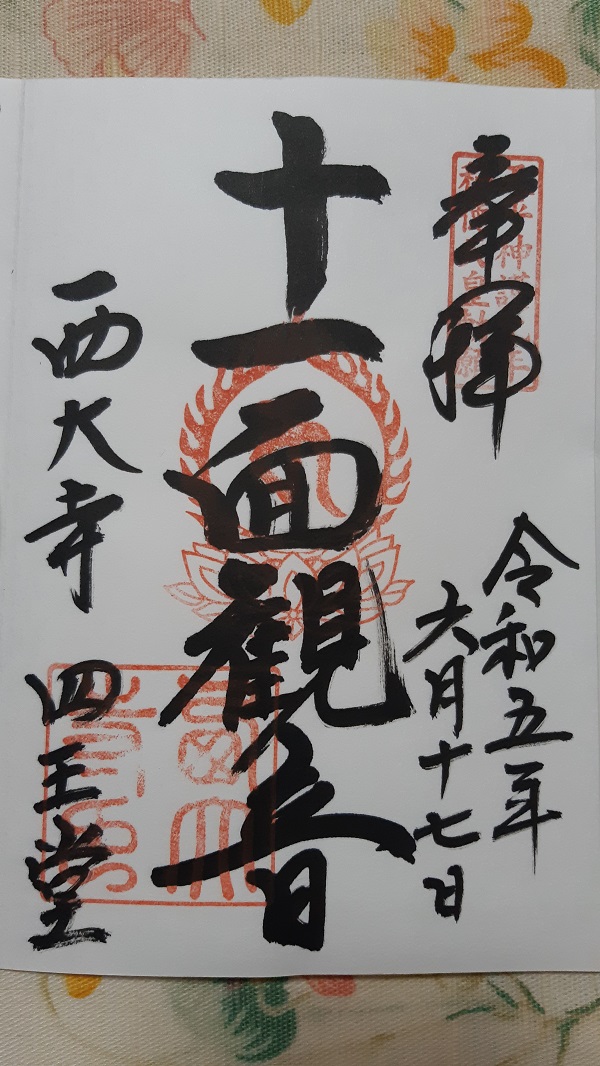 奉拝
令和五年
六月十七日
十一面観音
西大寺
四王堂